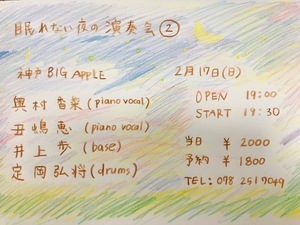 眠れない夜の演奏会②
神戸BIG APPLE
2月17日(日)
奥村音楽(piano vocal)
丑嶋恵(piano vocal)
井上歩(base)
定岡弘将(drums)
OPEN 19:00
START 19:30
当日 ¥2000
予約 ¥1800
TEL: 078 251 7049